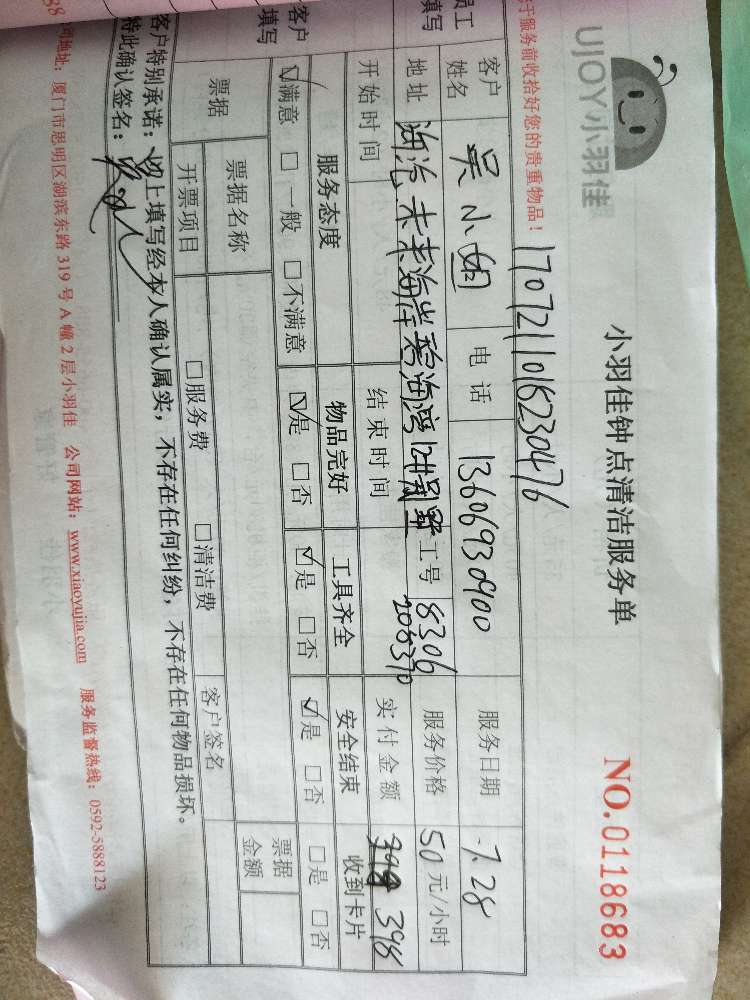 UJOY小羽佳
小羽佳钟点清洁服务单
NO.0118683
于服务前收拾好您的贵重物品！
1707211016230476
员工填写
客户姓名 吴小姐 电话 13606930900 服务日期 7.28
地址 海沧未来海岸碧海湾12#别墅 工号 8306 208370 服务价格 50元/小时
开始时间 结束时间 实付金额 398
客户填写
服务态度 物品完好 工具齐全 安全结束 收到卡片
☑满意 □一般 □不满意 ☑是 □否 ☑是 □否 ☑是 □否 □是 □否
票据 票据名称 票据金额
开票项目 □服务费 □清洁费 客户签名
客户特别承诺：以上填写经本人确认属实，不存在任何纠纷，不存在任何物品损坏。
特此确认签名：
司地址：厦门市思明区湖滨东路319号A幢2层小羽佳 公司网站：www.xiaoyujia.com 服务监督热线：0592-5888123